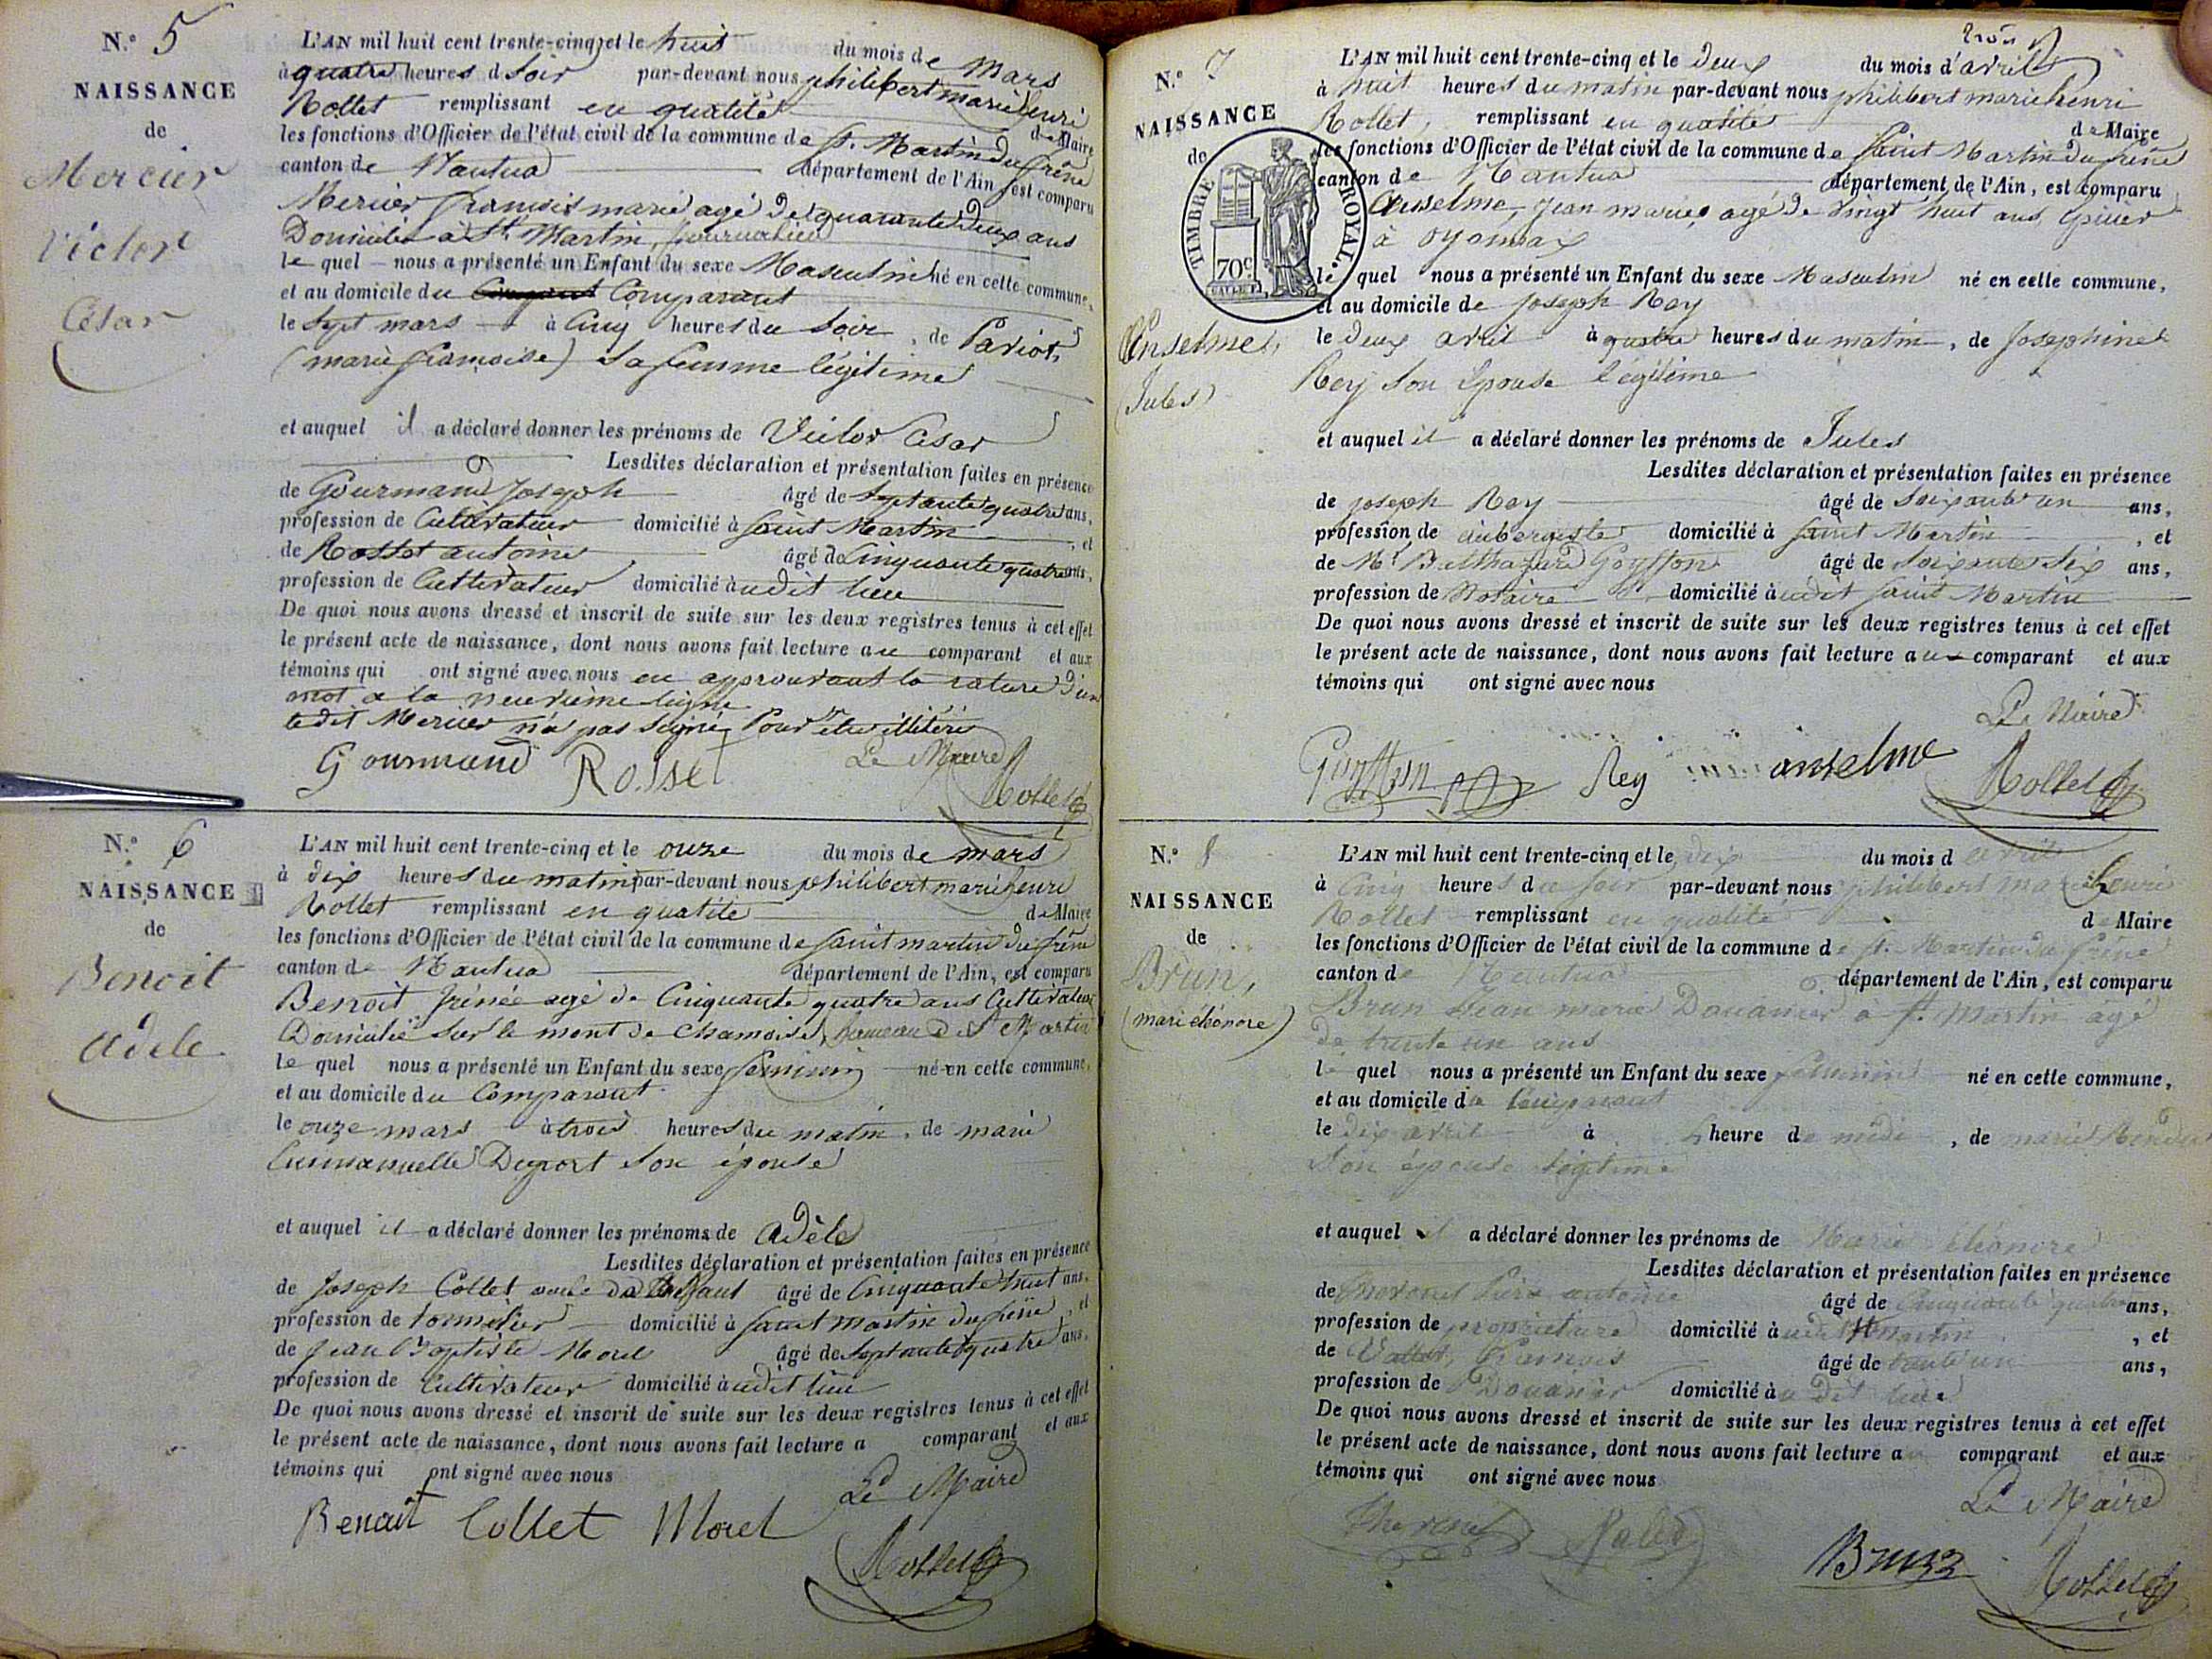 N.° 5
NAISSANCE
de
Mercier
Victor
César
L'AN mil huit cent trente-cinq et le huit du mois de Mars
à quatre heures d soir par-devant nous philibert marie henri
Rollet remplissant en qualité de Maire
les fonctions d'Officier de l'état civil de la commune de St. Martin du frêne
canton de Nantua département de l'Ain, est comparu
Mercier françois marie agé de quarante deux ans
Domicilié à St. Martin, journalier
le quel nous a présenté un Enfant du sexe Masculin né en cette commune,
et au domicile du Comparant
le sept mars à Cinq heures du soir, de Pariot,
(marie françoise) sa femme légitime
et auquel il a déclaré donner les prénoms de Victor César
Lesdites déclaration et présentation faites en présence
de Gourmand Joseph âgé de septante quatre ans,
profession de Cultivateur domicilié à Saint Martin, et
de Rosset antoine âgé de Cinquante quatre ans,
profession de Cultivateur domicilié audit lieu
De quoi nous avons dressé et inscrit de suite sur les deux registres tenus à cet effet
le présent acte de naissance, dont nous avons fait lecture au comparant et aux
témoins qui ont signé avec nous en approuvant la rature d'un
mot a la neuvième ligne
ledit Mercier n'a pas signé Pour être illitéré
Le Maire
Gourmand Rosset Rollet
N.° 6
NAISSANCE
de
Benoit
adele
L'AN mil huit cent trente-cinq et le onze du mois de mars
à dix heures du matin par-devant nous philibert marie henri
Rollet remplissant en qualité de Maire
les fonctions d'Officier de l'état civil de la commune de Saint martin du frêne
canton de Nantua département de l'Ain, est comparu
Benoit Irénée agé de Cinquante quatre ans Cultivateur
Domicilié sur le mont de Chamoise, hameau de St Martin
le quel nous a présenté un Enfant du sexe feminin né en cette commune,
et au domicile du Comparant
le onze mars à trois heures du matin, de marie
Emmanuelle Duport son épouse
et auquel il a déclaré donner les prénoms de adèle
Lesdites déclaration et présentation faites en présence
de Joseph Collet âgé de Cinquante huit ans,
profession de tonnelier domicilié à Saint martin du frêne, et
de Jean Baptiste Morel âgé de septante quatre ans,
profession de Cultivateur domicilié audit lieu
De quoi nous avons dressé et inscrit de suite sur les deux registres tenus à cet effet
le présent acte de naissance, dont nous avons fait lecture a comparant et aux
témoins qui ont signé avec nous
Le Maire
Benoit Collet Morel
Rollet
N.° 7
NAISSANCE
de
TIMBRE ROYAL.
70c
Anselme,
(Jules)
L'AN mil huit cent trente-cinq et le deux du mois d'avril
à huit heures du matin par-devant nous philibert marie henri
Rollet, remplissant en qualité de Maire
les fonctions d'Officier de l'état civil de la commune de Saint Martin du frêne
canton de Nantua département de l'Ain, est comparu
Anselme, Jean marie, agé de vingt huit ans, épicier
à oyonnax
le quel nous a présenté un Enfant du sexe Masculin né en cette commune,
et au domicile de Joseph Rey
le deux avril à quatre heures du matin, de Josephine
Rey son Epouse légitime
et auquel il a déclaré donner les prénoms de Jules
Lesdites déclaration et présentation faites en présence
de joseph Rey âgé de soixante un ans,
profession de aubergiste domicilié à Saint Martin, et
de Mr. Balthazard Goyffon âgé de soixante six ans,
profession de Notaire domicilié audit Saint Martin
De quoi nous avons dressé et inscrit de suite sur les deux registres tenus à cet effet
le présent acte de naissance, dont nous avons fait lecture au comparant et aux
témoins qui ont signé avec nous
Le Maire
Goyffon Rey anselme Rollet
N.° 8
NAISSANCE
de
Brun,
(marie éléonore)
L'AN mil huit cent trente-cinq et le dix du mois d avril
à Cinq heures du soir par-devant nous philibert marie henri
Rollet remplissant en qualité de Maire
les fonctions d'Officier de l'état civil de la commune de St. Martin du frêne
canton de Nantua département de l'Ain, est comparu
Brun Jean marie Douanier à St. Martin âgé
de trente six ans
le quel nous a présenté un Enfant du sexe féminin né en cette commune,
et au domicile du Comparant
le dix avril à heure de midi, de marie
son épouse légitime
et auquel il a déclaré donner les prénoms de Marie éléonore
Lesdites déclaration et présentation faites en présence
de Thevenet antoine âgé de Cinquante quatre ans,
profession de propriétaire domicilié à martin, et
de François âgé de trente un ans,
profession de Douanier domicilié au dit lieu
De quoi nous avons dressé et inscrit de suite sur les deux registres tenus à cet effet
le présent acte de naissance, dont nous avons fait lecture a comparant et aux
témoins qui ont signé avec nous
Le Maire
Thevenet Brun Rollet